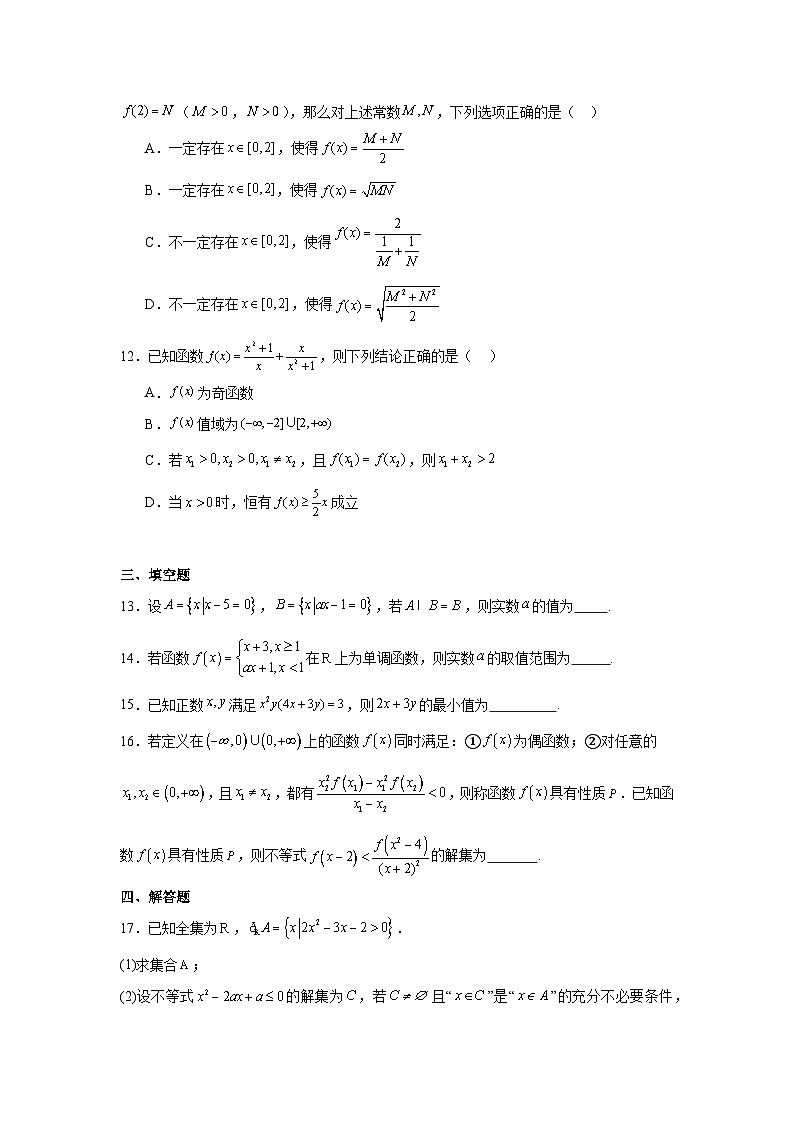 f(2)=N（M>0，N>0），那么对上述常数M,N，下列选项正确的是（　）
A．一定存在x∈[0,2]，使得f(x)=\frac{M+N}{2}
B．一定存在x∈[0,2]，使得f(x)=\sqrt{MN}
C．不一定存在x∈[0,2]，使得f(x)=\frac{2}{\frac{1}{M}+\frac{1}{N}}
D．不一定存在x∈[0,2]，使得f(x)=\sqrt{\frac{M^2+N^2}{2}}
12．已知函数f(x)=\frac{x^2+1}{x}+\frac{x}{x^2+1}，则下列结论正确的是（　）
A．f(x)为奇函数
B．f(x)值域为(−∞,−2]∪[2,+∞)
C．若x_1>0,x_2>0,x_1≠x_2，且f(x_1)=f(x_2)，则x_1+x_2>2
D．当x>0时，恒有f(x)≥\frac{5}{2}x成立
三、填空题
13．设A={x|x−5=0}，B={x|ax−1=0}，若A I B=B，则实数a的值为_____.
14．若函数f(x)=\begin{cases}x+3,x≥1\\ax+1,x<1\end{cases}在R上为单调函数，则实数a的取值范围为______.
15．已知正数x,y满足x^2y(4x+3y)=3，则2x+3y的最小值为__________.
16．若定义在(−∞,0)∪(0,+∞)上的函数f(x)同时满足：①f(x)为偶函数；②对任意的
x_1,x_2∈(0,+∞)，且x_1≠x_2，都有\frac{x_2^2f(x_1)−x_1^2f(x_2)}{x_1−x_2}<0，则称函数f(x)具有性质P．已知函
数f(x)具有性质P，则不等式f(x−2)<\frac{f(x^2−4)}{(x+2)^2}的解集为_______.
四、解答题
17．已知全集为R，A={x|2x^2−3x−2>0}．
(1)求集合A；
(2)设不等式x^2−2ax+a≤0的解集为C，若C≠∅且“x∈C”是“x∈A”的充分不必要条件，